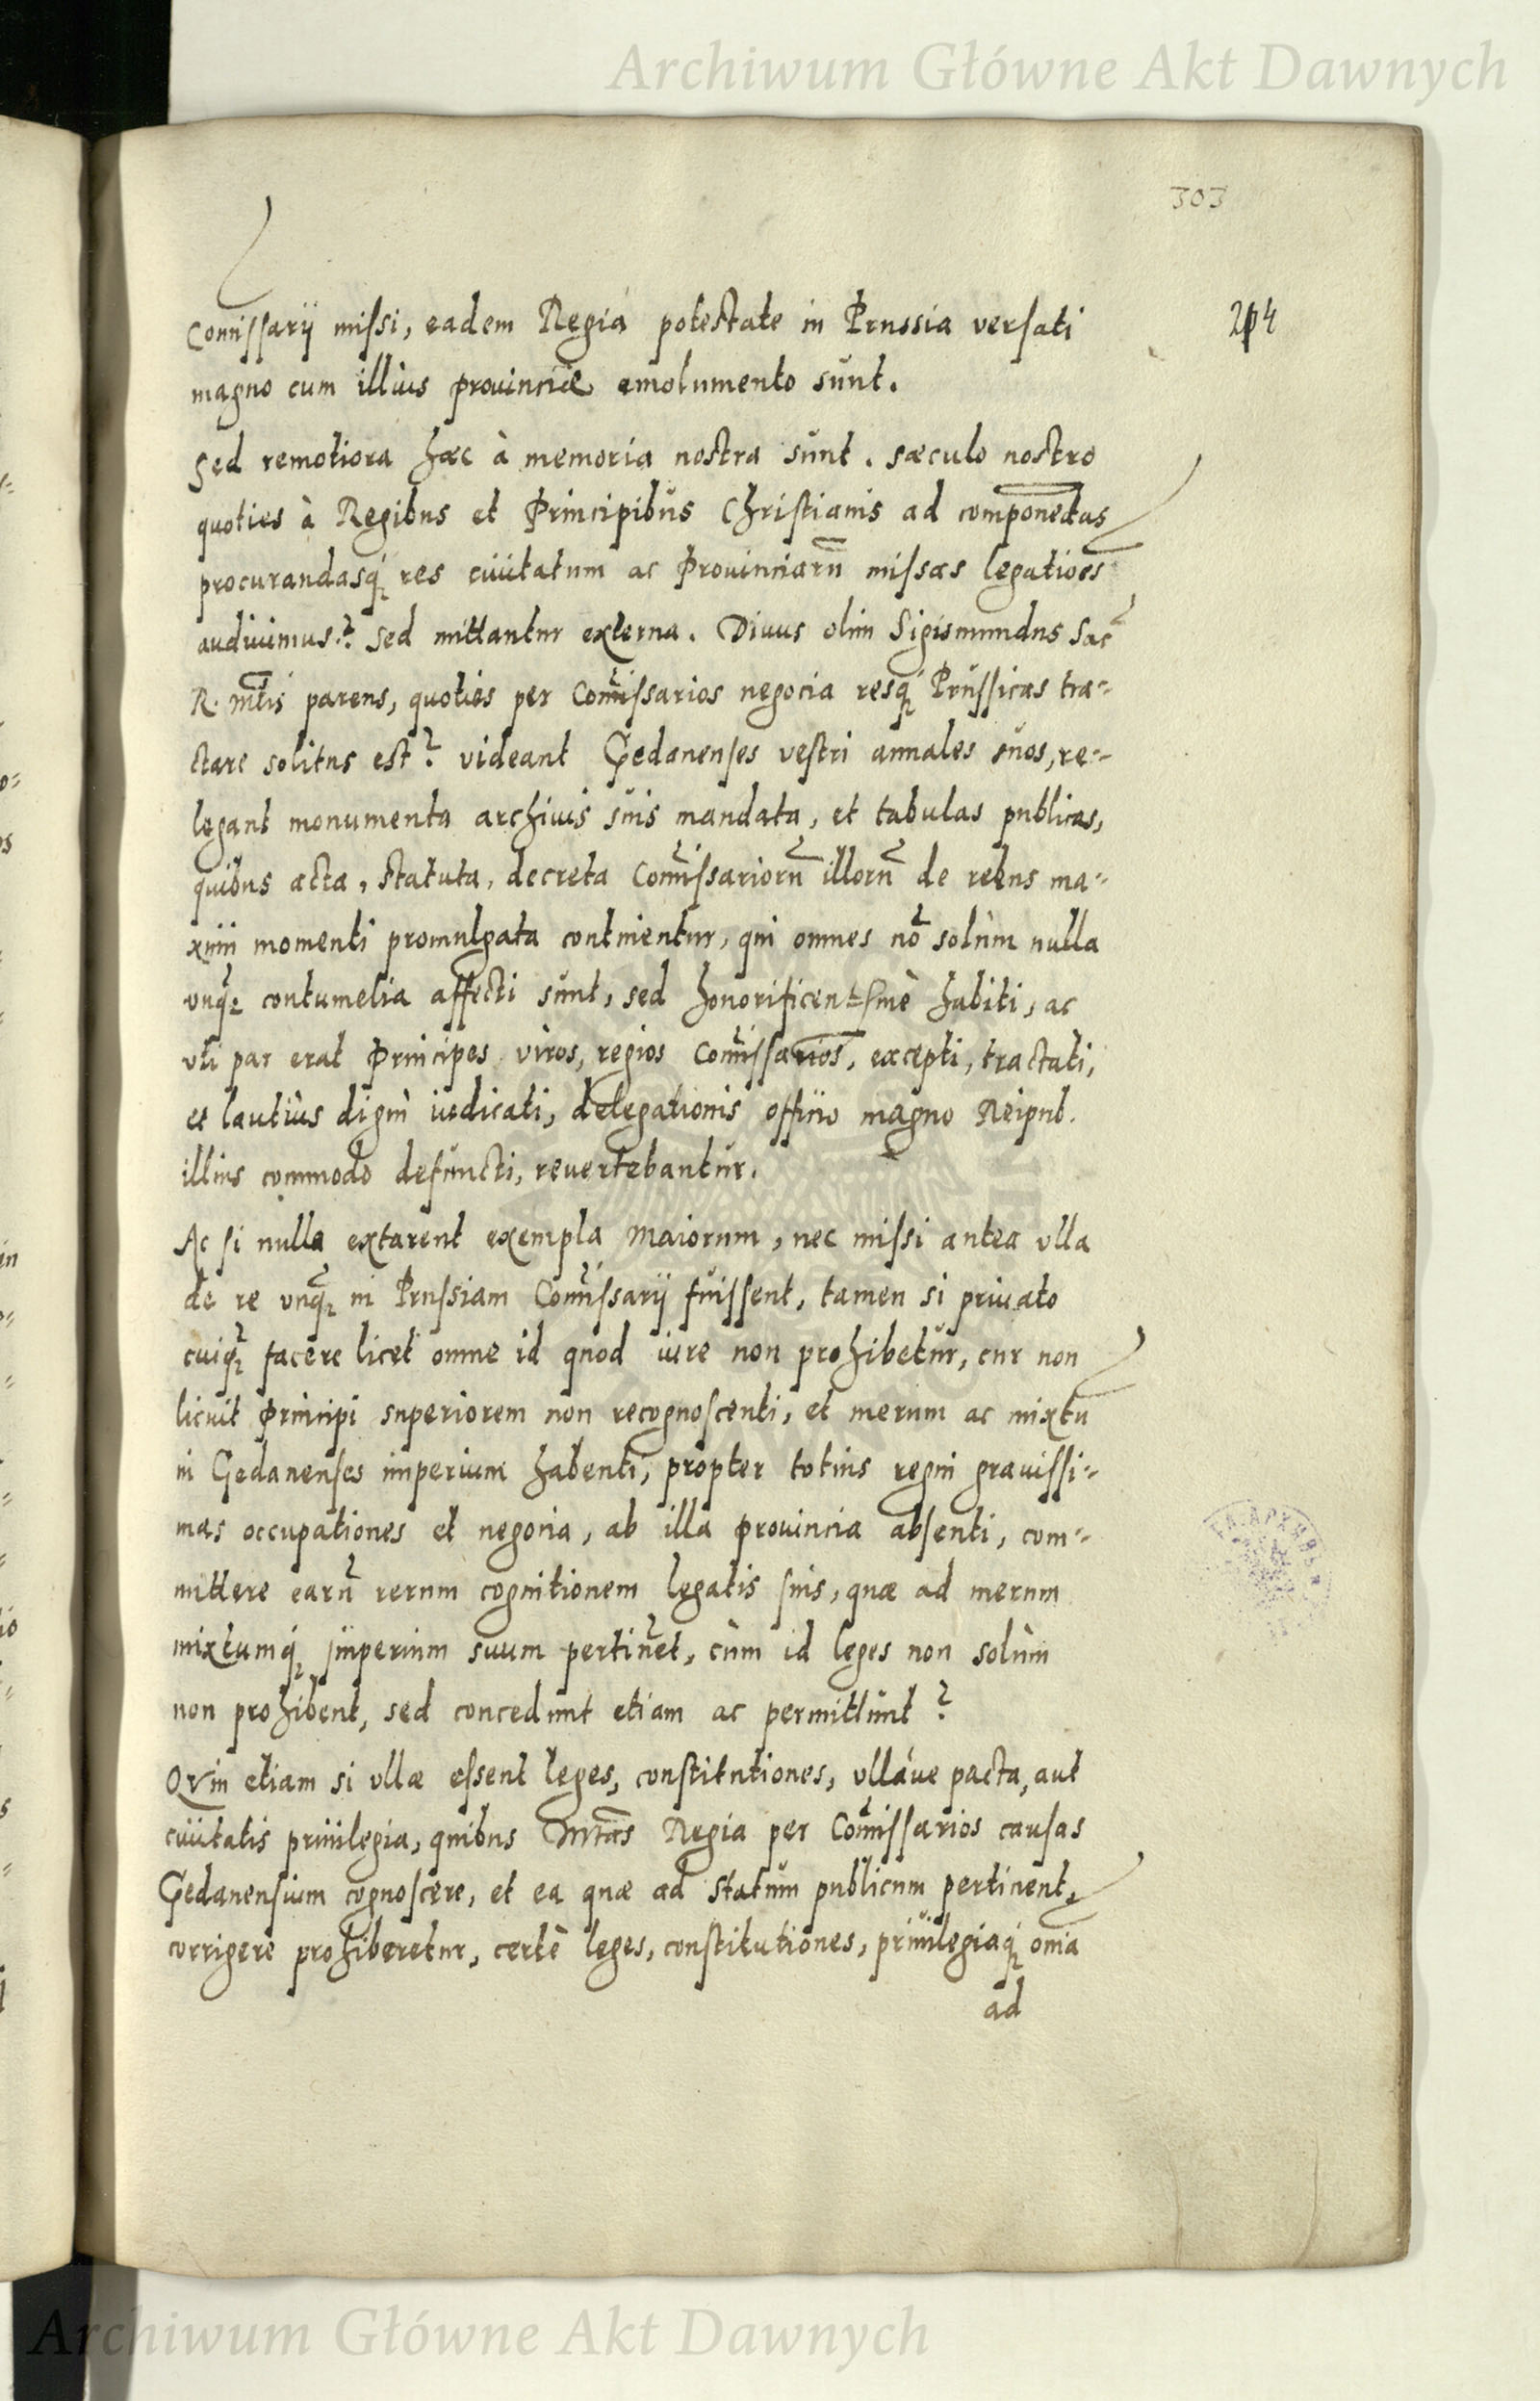 Archiwum Główne Akt Dawnych
303
Com̃issarij missi, eadem Regia potestate in Prussia versati
magno cum illius prouinciæ emolumento sunt.
Sed remotiora hæc à memoria nostra sunt. sæculo nostro
quoties à Regibus et Principibus Christianis ad componẽdas
procurandasq; res ciuitatum ac Prouinciarũ missas legatiões
audiuimus? Sed mittantur externa. Diuus olim Sigismundus Sac
R. Mtis parens, quoties per Com̃issarios negocia resq; Prussicas tra=
ctare solitus est? videant Gedanenses vestri annales suos, re=
legant monumenta archiuis suis mandata, et tabulas publicas,
quibus acta, statuta, decreta Com̃issariorũ illorũ de rebus ma=
ximi momenti promulgata continentur, qui omnes nõ solùm nulla
vnq̃ contumelia affecti sunt, sed honorificentissimè habiti, ac
vti par erat Principes viros, regios Com̃issarios, excepti, tractati,
et lautius digni iudicati, delegationis officio magno Reipub.
illius commodo defuncti, reuertebantur.
Ac si nulla extarent exempla Maiorum, nec missi antea vlla
de re vnq̃ in Prussiam Com̃issarij fuissent, tamen si priuato
cuiq; facere licet omne id quod iure non prohibetur, cur non
licuit Principi superiorem non recognoscenti, et merum ac mixtũ
in Gedanenses imperium habenti, propter totius regni grauissi=
mas occupationes et negocia, ab illa Prouincia absenti, com=
mittere earũ rerum cognitionem legatis suis, quæ ad merum
mixtumq; imperium suum pertinẽt, cùm id leges non solùm
non prohibent, sed concedunt etiam ac permittunt?
Qvin etiam si vllæ essent leges, constitutiones, vllàue pacta, aut
ciuitatis priuilegia, quibus Mtas Regia per Com̃issarios causas
Gedanensium cognoscere, et ea quæ ad statum publicum pertinent,
corrigere prohiberetur, certè leges, constitutiones, priuilegiaq; oĩa
ad
Archiwum Główne Akt Dawnych